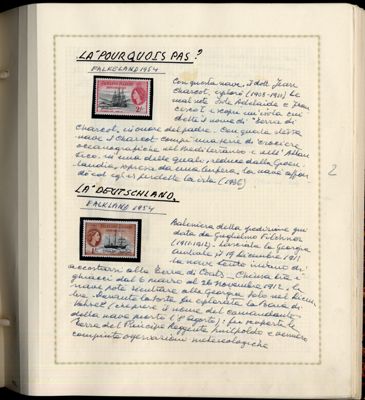 LA "POURQUOIS PAS"?
FALKELAND 1954
Con questa nave, il dott. Jean
Charcot, esplorò (1908-1910) le
isole Adelaide e
e scoprì un'isola cui
diede il nome di "Terra di
Charcot, in onore del padre. Con questa stessa
nave il Charcot compì una serie di crociere
oceanografiche nel Mediterraneo e nell'Atlan
tico. In una delle quali, reduce dalla Groen
landia, sorpresa da una bufera, la nave affon
dò ed egli vi perdette la vita (1936)
2
LA "DEUTSCHLAND"
FALKLAND 1954
Baleniera della spedizione gui
data da Guglielmo Filchner
(1911-1912). Lasciata la Georgia
Australe il 19 1911
la nave tentò invano di
accostarsi alla Terra di Coats. Chiusa tra i
ghiacci dal 6 marzo al 26 novembre 1912, la
nave poté rientrare alla Georgia solo nel dicem
bre. Durante la sosta fu esplorata la
(che prese il nome del comandante
della nave morto l'8 agosto); fu scoperta la
Terra del Principe Reggente Luitpoldo e vennero
compiute osservazioni meteorologiche